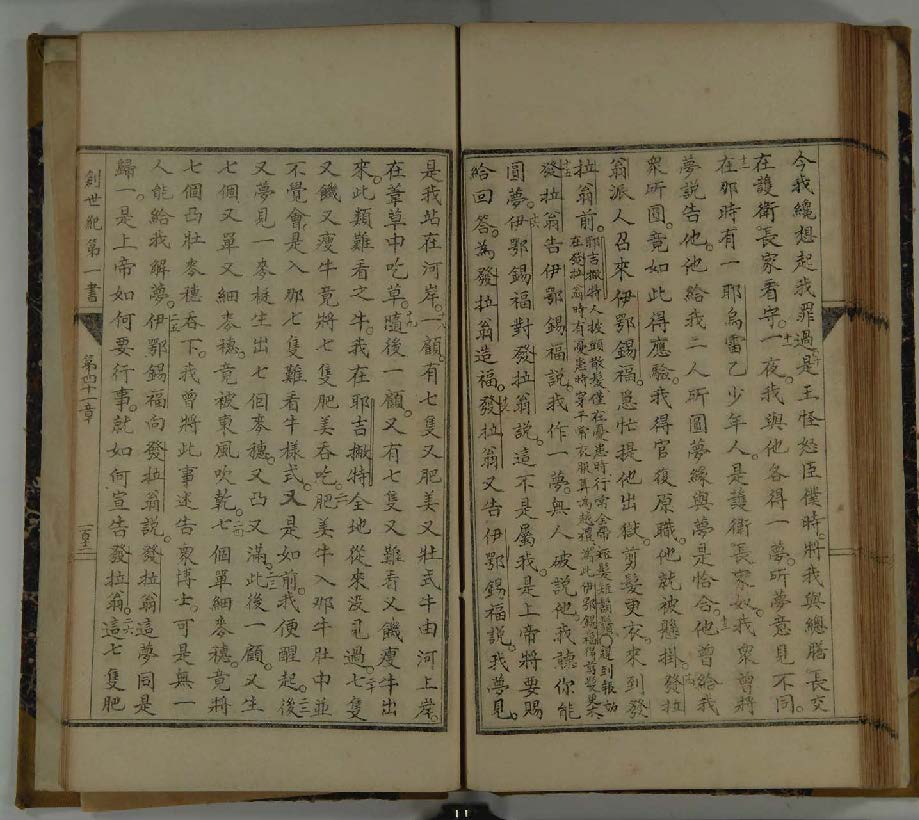 今我纔想起我罪過。是王怪怒臣僕時。將我與總膳長交
在護衛長家看守。十一一夜。我與他各得一夢。所夢意見不同。
十二在那時有一耶烏雷乙少年人。是護衛長家奴。我衆曾將
夢說告他。他給我二人所圓夢緣與夢是恰合。十三他曾給我
衆所圓。竟如此得應驗。我得官復原職。他就被懸掛。十四發拉
翁派人召來伊鄂錫福。怱忙提他出獄。剪髮更衣。來到發
拉翁前。耶吉撇特人披頭散髮僅在憂患時行常全帶短髮短鬍鬚
在發拉翁時有憂患時穿平常衣服算為越禮為此伊鄂錫福得剪髮更衣
十五發拉翁告伊鄂錫福說。我作一夢。無人破說他我聽你能
圓夢。十六伊鄂錫福對發拉翁說。這不是屬我。是上帝將要賜
給回答。為發拉翁造福。十七發拉翁又告伊鄂錫福說。我夢見。
是我站在河岸。十八一顧。有七隻又肥美又壯式牛由河上岸。
在葦草中吃草。十九隨後一顧。又有七隻又難看又饑瘦牛出
來。此類難看之牛。我在耶吉撇特全地從來没見過。二十七隻
又饑又瘦牛竟將七隻肥美吞吃。二一肥美牛入那牛肚中並
不覺會是入那七隻難看牛樣式。又是如前。我便醒起。二二後
又夢見一麥梃生出七個麥穗。又凸又滿。二三此後一顧。又生
七個又單又細麥穗。竟被東風吹乾。二四七個單細麥穗。竟將
七個凸壯麥穗吞下。我曾將此事述告衆博士。可是無一
人能給我解夢。二五伊鄂錫福向發拉翁說。發拉翁這夢同是
歸一。是上帝如何要行事。就如何宣告發拉翁。二六這七隻肥
創世紀第一書
第四十一章